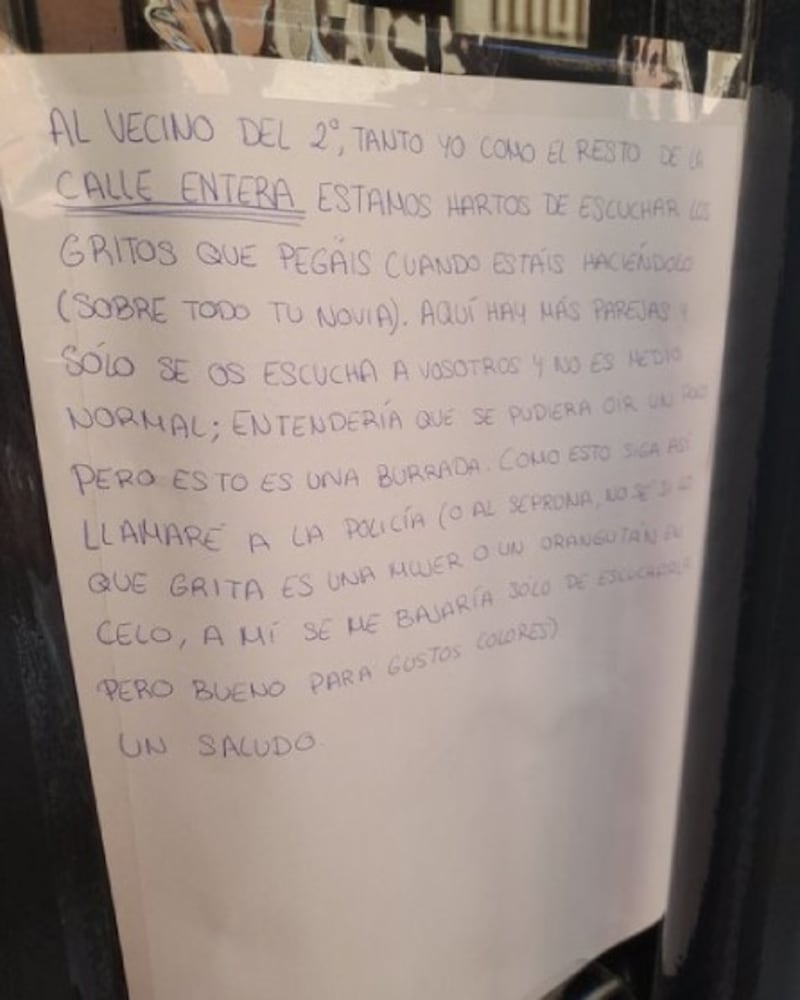 AL VECINO DEL 2º, TANTO YO COMO EL RESTO DE LA
CALLE ENTERA ESTAMOS HARTOS DE ESCUCHAR LOS
GRITOS QUE PEGÁIS CUANDO ESTÁIS HACIÉNDOLO
(SOBRE TODO TU NOVIA). AQUÍ HAY MÁS PAREJAS Y
SÓLO SE OS ESCUCHA A VOSOTROS Y NO ES MEDIO
NORMAL; ENTENDERÍA QUE SE PUDIERA OIR UN POCO
PERO ESTO ES UNA BURRADA. COMO ESTO SIGA ASÍ
LLAMARÉ A LA POLICÍA (O AL SEPRONA, NO SÉ SI LO
QUE GRITA ES UNA MUJER O UN ORANGUTÁN EN
CELO, A MÍ SE ME BAJARÍA SÓLO DE ESCUCHARLA
PERO BUENO PARA GUSTOS COLORES)
UN SALUDO.